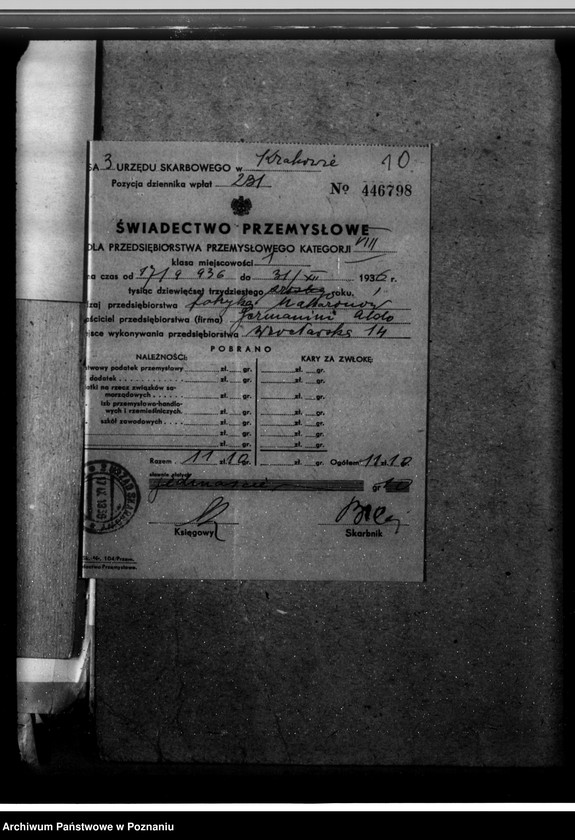 SA 3 URZĘDU SKARBOWEGO w Krakowie 10
Pozycja dziennika wpłat 291
№ 446798
ŚWIADECTWO PRZEMYSŁOWE
DLA PRZEDSIĘBIORSTWA PRZEMYSŁOWEGO KATEGORJI VIII
klasa miejscowości 1
na czas od 17/9 936 do 31/XII 1936 r.
tysiąc dziewięćset trzydziestego roku.
zaj przedsiębiorstwa fabryka makaronów
aściciel przedsiębiorstwa (firma) Germanini Aldo
ejsce wykonywania przedsiębiorstwa Wrocławska 14
POBRANO
NALEŻNOŚĆ: KARY ZA ZWŁOKĘ:
stwowy podatek przemysłowy zł. gr. zł. gr.
dodatek zł. gr. zł. gr.
atki na rzecz związków sa-
morządowych zł. gr. zł. gr.
izb przemysłowo-handlo-
wych i rzemieślniczych. zł. gr. zł. gr.
szkół zawodowych zł. gr. zł. gr.
zł. gr. zł. gr.
zł. gr. zł. gr.
Razem 11 zł. 10 gr. zł. gr. Ogółem 11 zł. 10
słownie złotych
jedenaście gr.
Księgowy Skarbnik
3 URZĄD SKARBOWY
17 IX. 1936
Nr. 104/Przem.
Przemysłowe.
Archiwum Państwowe w Poznaniu